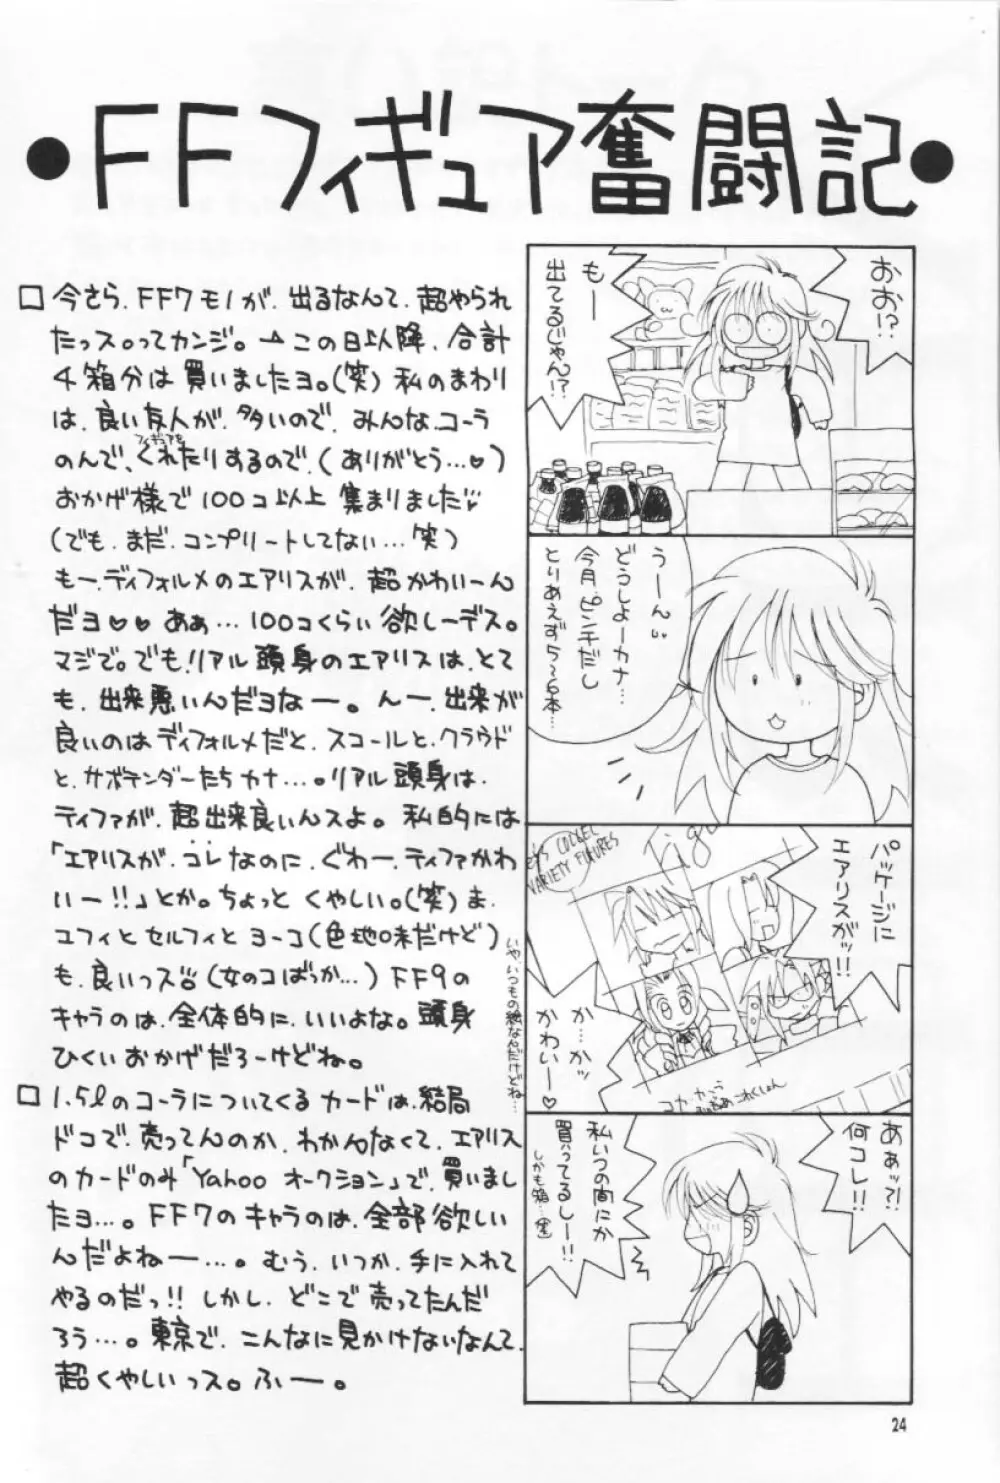 ●FFフィギュア奮闘記●
□今さら、FF7モノが、出るなんて、超やられ
たっス。ってカンジ。→この日以降、合計
4箱分は買いましたヨ。(笑)私のまわり
は、良い友人が、多いので、みんな、コーラ
のんで、フィギュアをくれたりするので、(ありがとう…♥)
おかげ様で100コ以上集まりました
(でも、まだ、コンプリートしてない…笑)
もー、ディフォルメのエアリスが、超かわいーん
だヨ♥♥ あぁ…100コくらい欲しーデス。
マジで。でも!リアル頭身のエアリスは、とて
も、出来悪いんだヨなー。んー、出来が
良いのはディフォルメだと、スコールと、クラウド
と、サボテンダーたちカナ…。リアル頭身は、
ティファが、超出来良いんスよ。私的には
「エアリスが、コレなのに、ぐわー、ティファかわ
いー!!」とか。ちょっとくやしい。(笑)ま、
ユフィとセルフィとヨーコ(色地味だけど)
も、良いっス(女のコばっか…)FF9の
キャラのは、全体的に、いいよな。頭身
ひくいおかげだろーけどね。
□1.5ℓのコーラについてくるカードは、結局
ドコで、売ってんのか、わかんなくて、エアリス
のカードのみ「Yahooオークション」で、買いまし
たヨ…。FF7のキャラのは、全部欲しい
んだよねー…。むう、いつか、手に入れて
やるのだっ!!しかし、どこで売ってたんだ
ろう…。東京で、こんなに見かけないなんて、
超くやしいっス。ふー。
おお!?
もー
出てるじゃん!?
うーん
どうしよーカナ…
今月、ピンチだし
とりあえず5〜6本…
パッケージに
エアリスがッ!!
COLLEL
VARIETY FIGURES
か…かッ
かわいー♥
いや、いつもの絵なんだけどね…
コカ・コーラ
あぁッ?!
何コレ!!
私いつの間にか
買ってるしー!!
しかも箱…(笑)
24